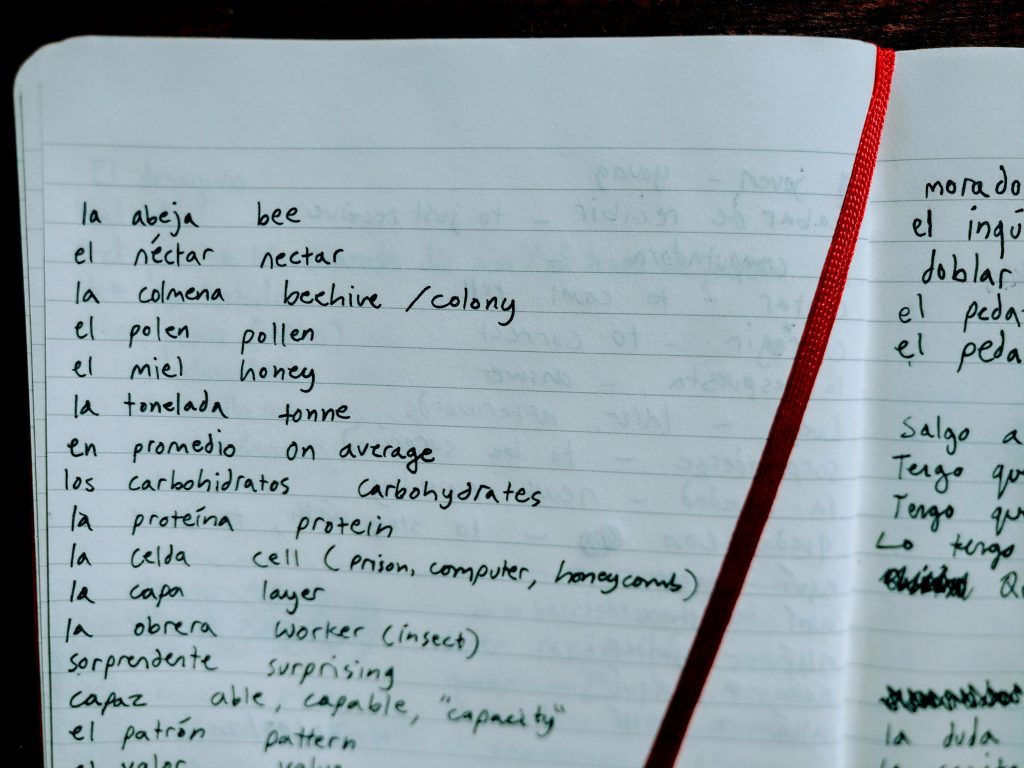 la abeja bee
el néctar nectar
la colmena beehive /colony
el polen pollen
el miel honey
la tonelada tonne
en promedio on average
los carbohidratos carbohydrates
la proteína protein
la celda cell (prison, computer, honeycomb)
la capa layer
la obrera worker (insect)
sorprendente surprising
capaz able, capable, "capacity"
el patrón pattern
el valor value
morado
el ingü
doblar
el peda
el peda
Salgo a
Tengo qu
Tengo qu
Lo tengo
la duda